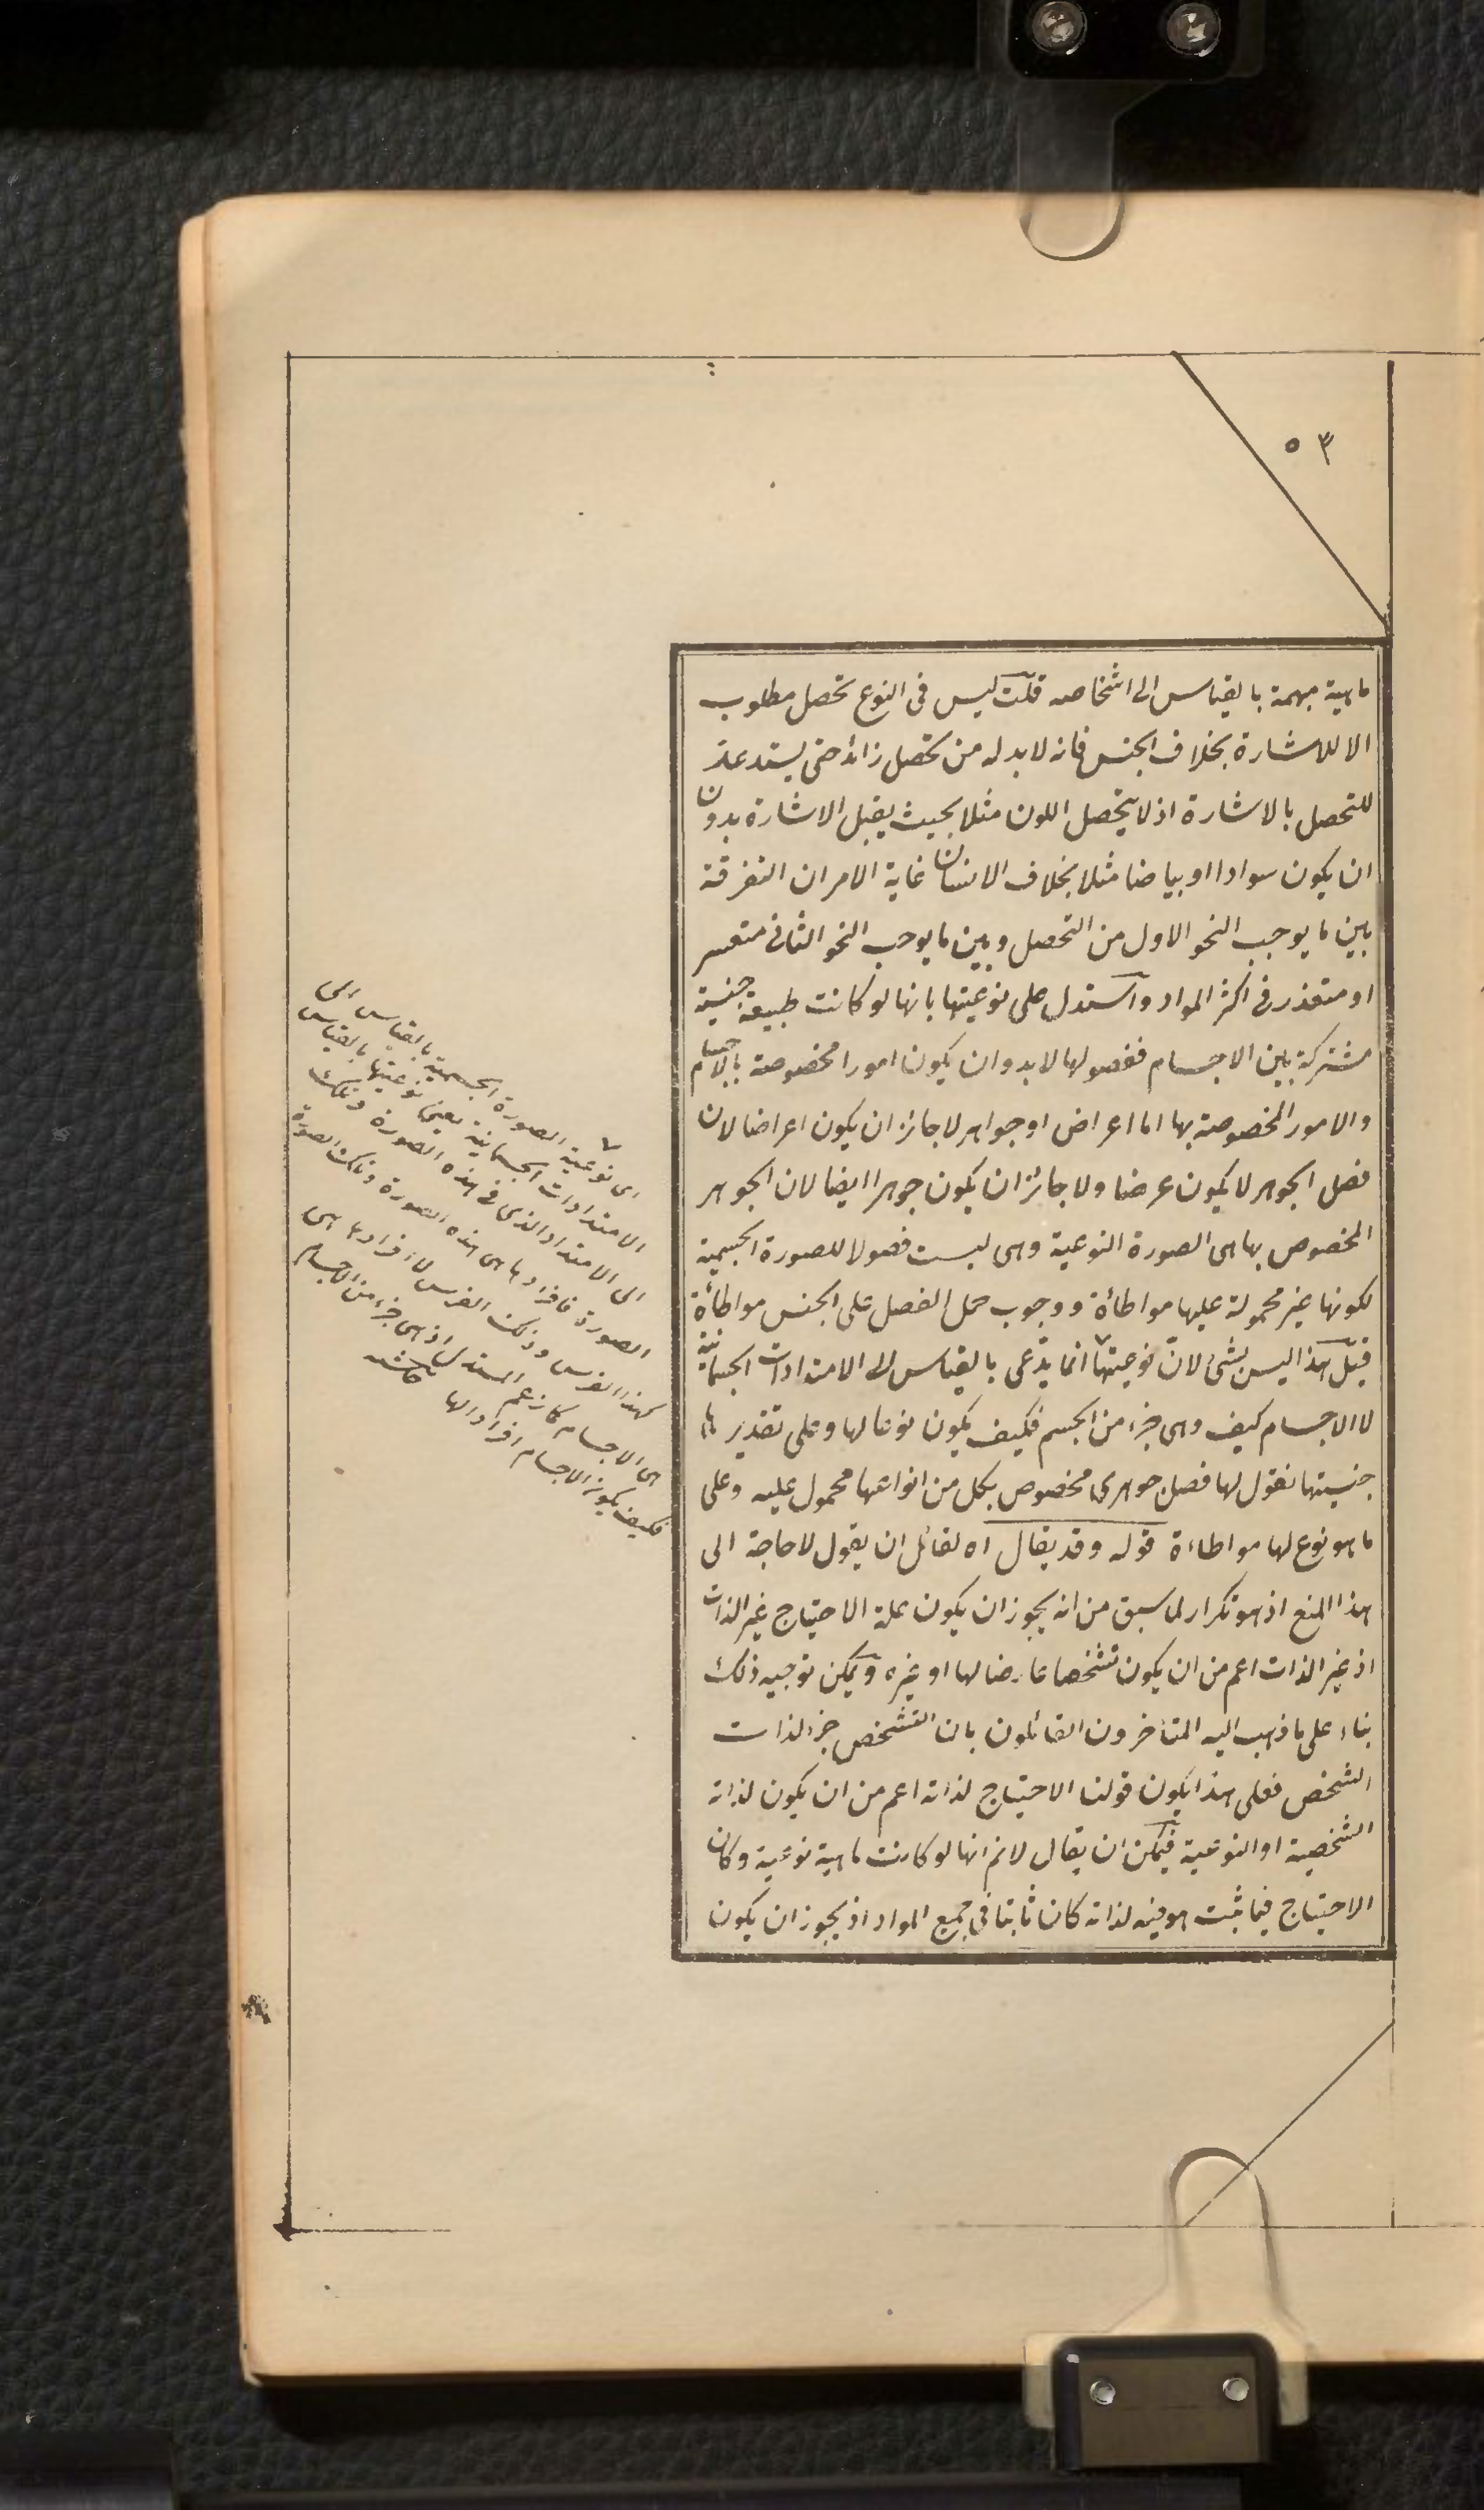 ٥٣
ماهية مبهمة بالقياس الى اشخاصه قلت ليس فى النوع تحصل مطلوب
الا للاشارة بخلاف الجنس فانه لا بد له من تحصل زائد حتى يستدعد
للتحصل بالاشارة اذ لا يتحصل اللون مثلا بحيث يقبل الاشارة بدون
ان يكون سوادا او بياضا مثلا بخلاف الانسان غاية الامر ان التفرقة
بين ما يوجب النحو الاول من التحصل وبين ما يوجب النحو الثانى متعسر
او متعذر فى اكثر المواد واستدل على نوعيتها بانها لو كانت طبيعة جنسية
مشتركة بين الاجسام ففصولها لا بد وان يكون امورا مخصوصة بالاجسام
والامور المخصوصة بها اما اعراض او جواهر لا جائز ان يكون اعراضا لان
فصل الجوهر لا يكون عرضا ولا جائز ان يكون جوهرا ايضا لان الجوهر
المخصوص بها هى الصورة النوعية وهى ليست فصولا للصورة الجسمية
لكونها غير محمولة عليها مواطأة ووجوب حمل الفصل على الجنس مواطأة
قيل هذا ليس بشئ لان نوعيتها انما يدّعى بالقياس الى الامتدادات الجسمانية
لا الاجسام كيف وهى جزء من الجسم فكيف يكون نوعا لها وعلى تقدير
جنسيتها نقول لها فصل جوهرى مخصوص بكل من انواعها محمول عليه وعلى
ما هو نوع لها مواطاءة قوله وقد يقال اه لقائل ان يقول لا حاجة الى
هذا المنع اذ هو تكرار لما سبق من انه يجوز ان يكون علة الاحتياج غير الذات
اذ غير الذات اعم من ان يكون تشخصا عارضا لها او غيره ويمكن توجيه ذلك
بناء على ما ذهب اليه المتأخرون القائلون بان التشخص جزء لذات
الشخص فعلى هذا يكون قولنا الاحتياج لذاته اعم من ان يكون لذاته
الشخصية او النوعية فيمكن ان يقال لانم انها لو كانت ماهية نوعية وكان
الاحتياج فيما ثبت هو فيه لذاته كان ثابتا فى جميع المواد اذ يجوز ان يكون
اى نوعية الصورة الجسمية بالقياس الى
الامتدادات الجسمانية يعنى نوعيتها بالقياس
الى الامتداد الذى فى هذه الصورة وتلك
الصورة فافرادها هى هذه الصورة وتلك الصورة
كهذا الفرس وذلك الفرس لا افرادها هى
هى الاجسام كما زعم المستدل اذ هى جزء من الاجسام
فكيف يكون الاجسام افرادا لها